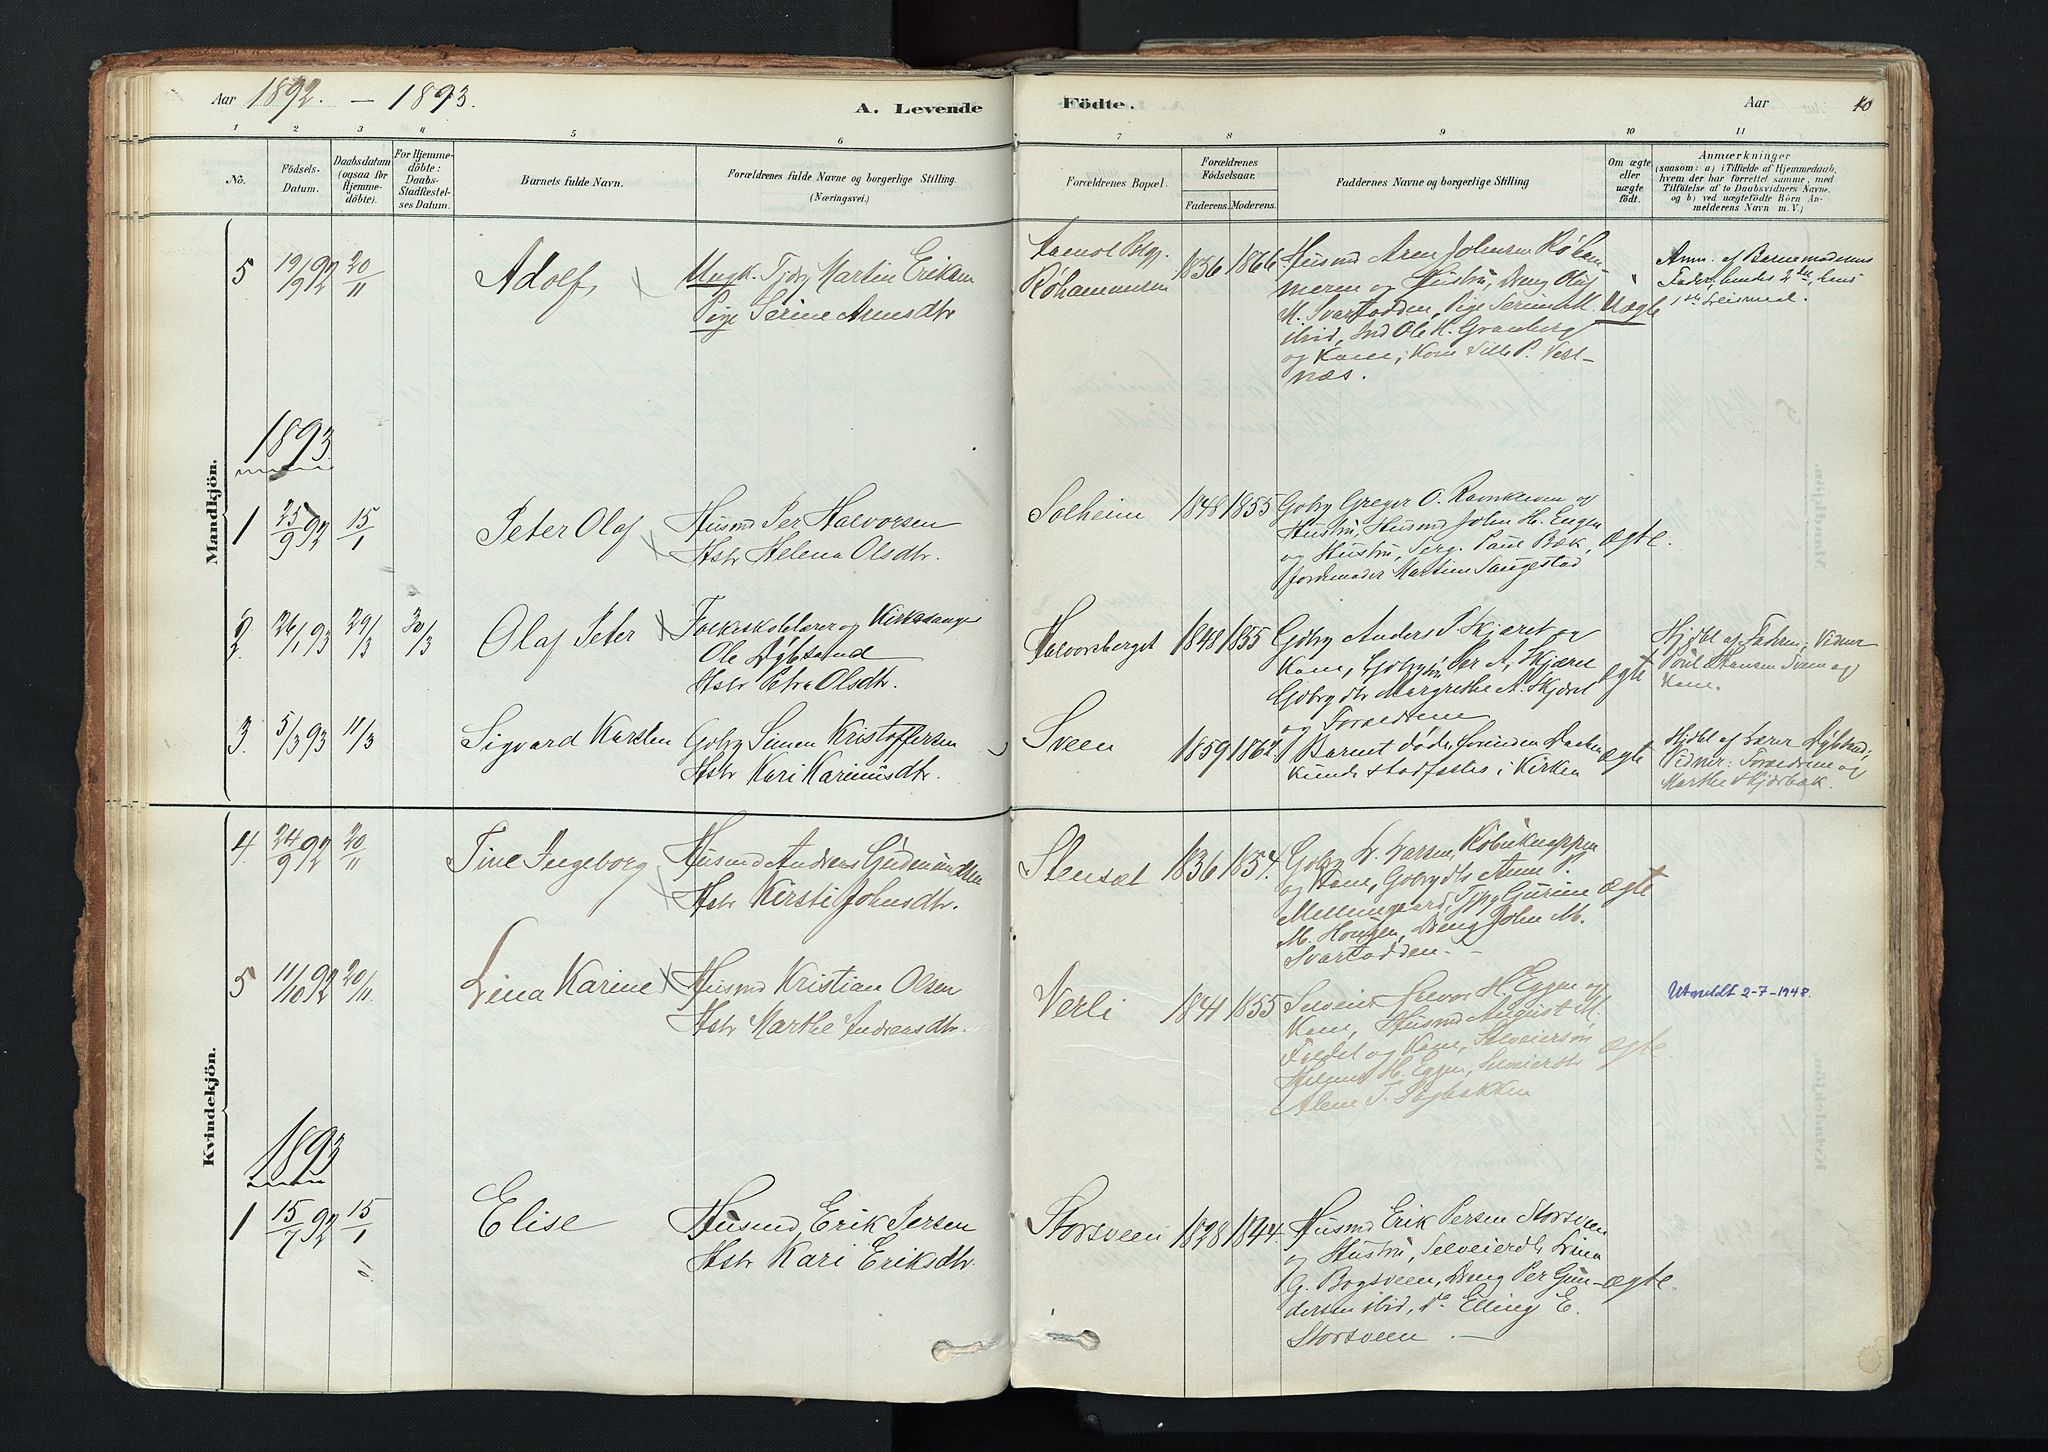 Aar 1892. – 1893.
A. Levende
Födte.
Aar
40
1 2 3 4 5 6 7 8 9 10 11
No.
Födsels-
Datum.
Daabsdatum
(ogsaa for
Hjemme-
döbte).
For Hjemme-
döbte:
Daabs-
Stadfæstel-
ses Datum.
Barnets fulde Navn.
Forældrenes fulde Navne og borgerlige Stilling.
(Næringsvei.)
Forældrenes Bopæl.
Forældrenes
Födselsaar.
Faderens. Moderens.
Faddernes Navne og borgerlige Stilling
Om ægte
eller
uægte
födt.
Anmærkninger
(saasom: a) i Tilfælde af Hjemmedaab,
hvem der har forrettet samme, med
Tilföielse af to Daabsvidners Navne,
og b) ved uægtefödte Börn An-
melderens Navn m. V.)
Mandkjön.
5 19/9 92 20/11
Adolf,
Ungk. Martin Eriksen
Pige Serine Arnesdtr
Röhammeren
1856 1866
Husmd Aren Johnsen Röham-
meren og Hustru, Dreng Oluf
M. Svartødden, Pige Serine M.
ibid, Ole H. Granberg
og Kone, Kone P. Vest-
næs.
Uægte
Anm. af Barnemoderens
Fader, hendes 2det, hans
1ste Leiermaal.
1893
1 25/9 92 15/1
Peter Olaf
Husmd Per Halvorsen
Hstr Helena Olsdtr.
Solheim
1848 1855
Gbrg Greger O. Ravnkleven og
Hustru, Husmd John H. Engen
og Hustru, Serg. Paul Bæk,
Jordemoder Martine Saugestad
ægte.
2 26/1 93 29/3 30/3
Olaf Peter
Folkeskolelærer og Kirkesanger
Ole Dybsand
Hstr Petra Olsdtr.
Halvorsberget
1848 1855
Gbrg Anders P. Skjæret og
Kone, Per A. Skjæret
Margrethe A. Skjæret
og Forældrene
ægte
Hjdbt af Faderen, Vidner
Poul Hansen Sveen og
Kone.
3. 5/3 93 11/3
Sigvard Karsten
Gbrg Simen Kristoffersen
Hstr Kari Karinusdtr.
Sveen
1859 1862
Barnet døde, førinden Daaben
kunde stadfæstes i Kirken
ægte
Hjdbt af Lærer Dybsand;
Vidner: Forældrene og
Marthe Skjørbæk.
Kvindekjön.
4. 24/9 92 20/11
Tine Ingeborg
Husmd Andreas Gudmundsen
Hstr Kirsti Johnsdtr.
Stensæt
1836 1854.
L. Larsen,
og Kone, Anne P.
Gurine
M. Dreng John M.
Svartødden. –
ægte
5 11/10 92 20/11
Lina Karine
Husmd Kristian Olsen
Hstr Marthe Andreasdtr.
Verli
1841 1855
Selveier Halvor H. Eggen og
Kone, Husmd August M.
og Kone, Selveiersøn
H. Eggen, Selveierdtr
Alene
ægte
Utmeldt 2-7-1948.
1893
1 15/7 92 15/1
Elise
Husmd Erik Persen
Hstr Kari Eriksdtr.
Storsveen
1828 1844.
Husmd Erik Persen Storsveen
og Hustru, Selveierdtr Lina
G. Bogsveen, Dreng Per Gun-
dersen ibid, do Elling E.
Storsveen –
ægte.